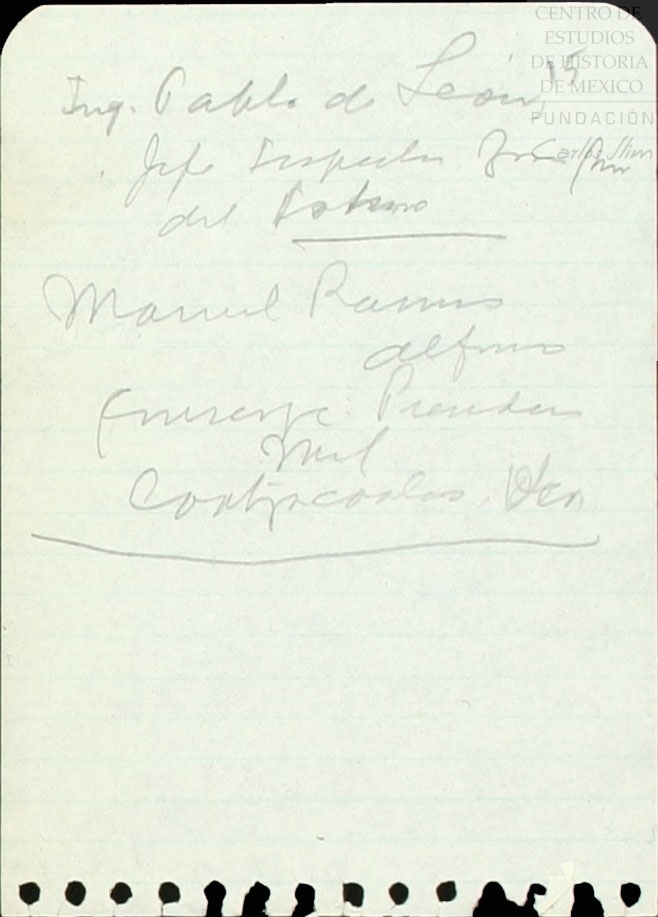 CENTRO DE
ESTUDIOS
DE HISTORIA
DE MEXICO
FUNDACIÓN
Carlos Slim
15
Ing. Pablo de León,
Jefe Inspector
del Istmo
Manuel Ramos
Alfonso
Presidente
Mpl
Coatzacoalcos, Ver.